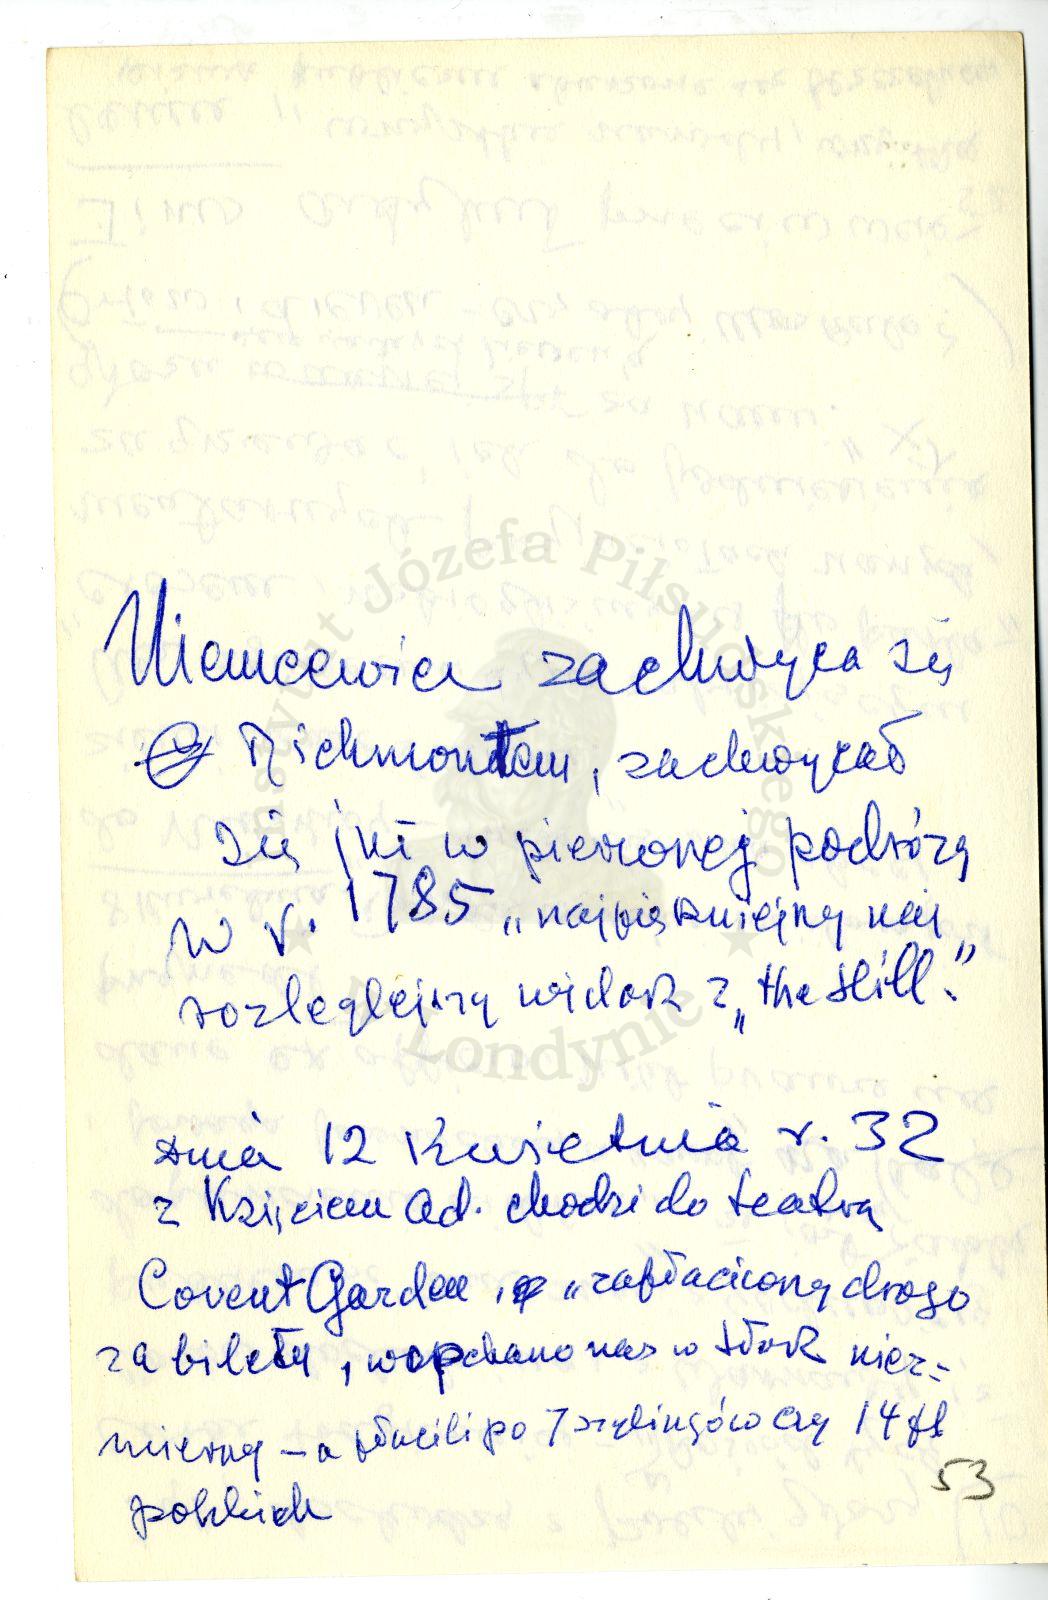 Niemcewicz zachwyca się
Richmontem, zachwycał
się już w pierwszej podróży
w r. 1785 „najpiękniejszy naj
rozleglejszy widok z „the Hill."
Dnia 12 Kwietnia r. 32
z Księciem Ad. chodzi do teatru
Covent Garden, „zapłaciwszy drogo
za bilety, wepchano nas w tłok niez=
mierny – a płacili po 7 szylingów czy 14 fl
polskich
53
Instytut Józefa Piłsudskiego
w Londynie